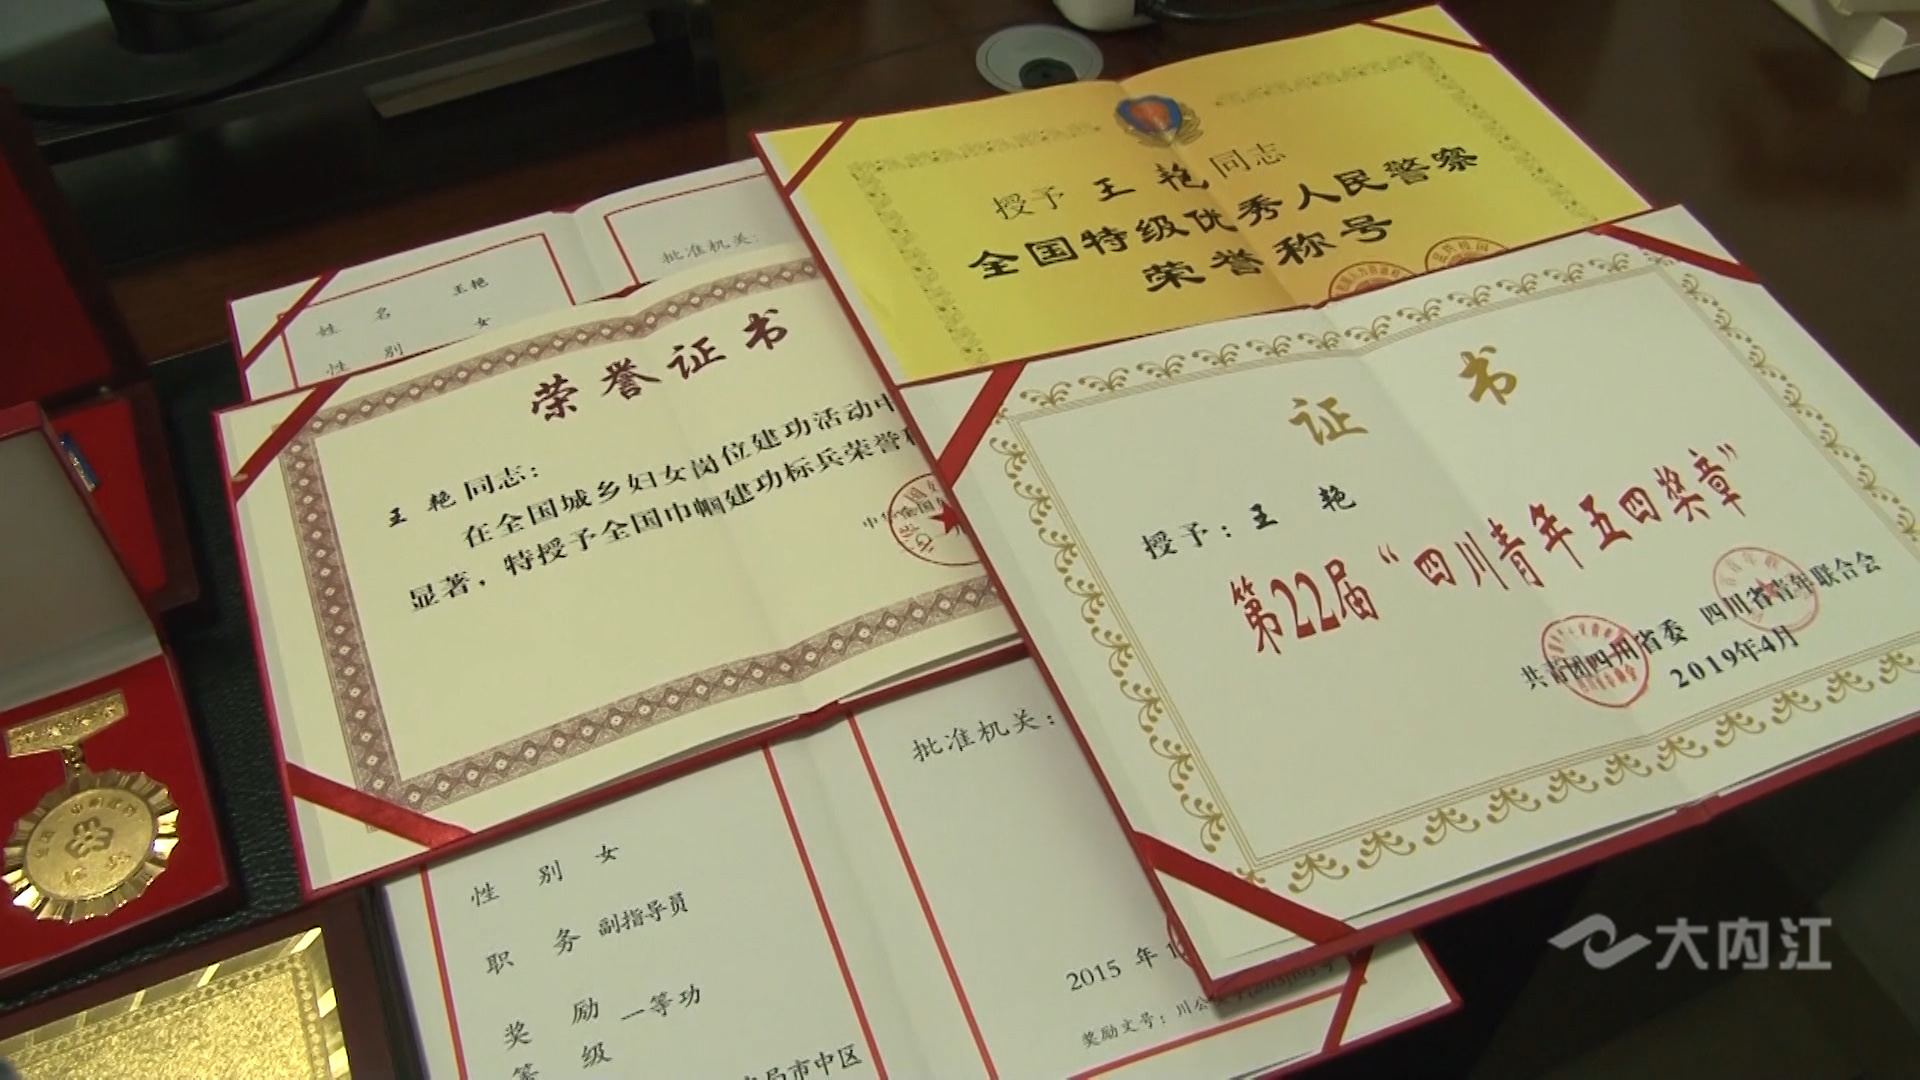 授予 王 艳 同志
全国特级优秀人民警察
荣誉称号
批准机关:
姓 名 王艳
性 别 女
荣誉证书
王 艳 同志:
在全国城乡妇女岗位建功活动中
显著,特授予全国巾帼建功标兵荣誉称
证 书
授予:王 艳
第22届“四川青年五四奖章”
共青团四川省委 四川省青年联合会
2019年4月
批准机关:
性 别 女
职 务 副指导员
奖 励 一等功
等 级
局市中区
2015 年 1
奖励文号:川公
大内江